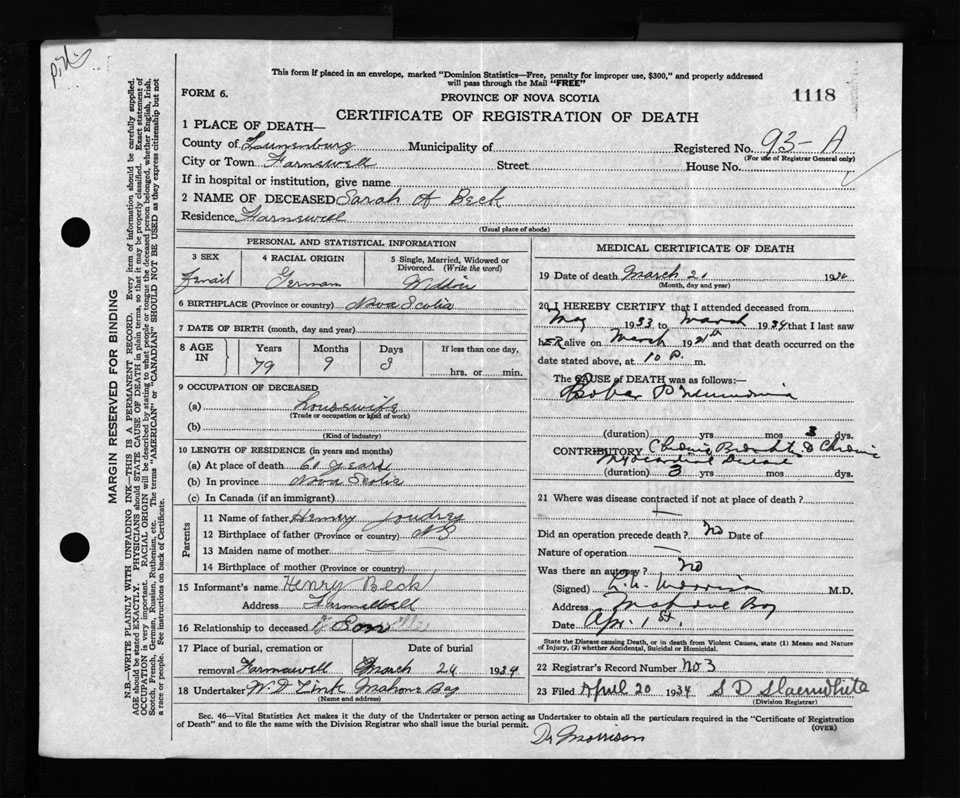 This form if placed in an envelope, marked "Dominion Statistics—Free, penalty for improper use, $300," and properly addressed
will pass through the Mail "FREE"
FORM 6.
PROVINCE OF NOVA SCOTIA
1118
CERTIFICATE OF REGISTRATION OF DEATH
1 PLACE OF DEATH—
County of Lunenburg Municipality of Registered No. 93-A
(For use of Registrar General only)
City or Town Street House No.
If in hospital or institution, give name
2 NAME OF DECEASED Sarah A Beck
Residence
(Usual place of abode)
MARGIN RESERVED FOR BINDING
N.B.—WRITE PLAINLY WITH UNFADING INK—THIS IS A PERMANENT RECORD. Every item of information should be carefully supplied.
AGE should be stated EXACTLY. PHYSICIANS should STATE CAUSE OF DEATH in plain terms, so that it may be properly classified. Exact statement of
OCCUPATION is very important. RACIAL ORIGIN will be described by stating to what people or tongue the deceased person belonged, whether English, Irish,
Scotch, French, German, Russian, Ruthenian, etc. The terms "AMERICAN" or "CANADIAN" SHOULD NOT BE USED as they express citizenship but not
a race or people. See instructions on back of Certificate.
PERSONAL AND STATISTICAL INFORMATION
3 SEX
4 RACIAL ORIGIN
German
5 Single, Married, Widowed or
Divorced. (Write the word)
6 BIRTHPLACE (Province or country) Nova Scotia
7 DATE OF BIRTH (month, day and year)
8 AGE IN
Years Months Days If less than one day,
79 9 3 hrs. or min.
9 OCCUPATION OF DECEASED
(a) housewife
(Trade or occupation or kind of work)
(b)
(Kind of industry)
10 LENGTH OF RESIDENCE (in years and months)
(a) At place of death 60 years
(b) In province Nova Scotia
(c) In Canada (if an immigrant)
Parents
11 Name of father Henry Joudrey
12 Birthplace of father (Province or country) NS
13 Maiden name of mother —
14 Birthplace of mother (Province or country)
15 Informant's name Henry Beck
Address
16 Relationship to deceased Son
17 Place of burial, cremation or Date of burial
removal March 24 1934
18 Undertaker W D Zink Mahone Bay
(Name and address)
MEDICAL CERTIFICATE OF DEATH
19 Date of death March 21 1934
(Month, day and year)
20 I HEREBY CERTIFY that I attended deceased from
May 1933 to March 1934 that I last saw
hER alive on March 21st and that death occurred on the
date stated above, at 10 P. m.
The CAUSE of DEATH was as follows:—
Lobar Pneumonia
(duration) yrs mos 3 dys.
CONTRIBUTORY Chronic Bronchitis & Chronic
Myocardial Disease
(duration) 3 yrs mos dys.
21 Where was disease contracted if not at place of death?
—
Did an operation precede death? No Date of
Nature of operation —
Was there an autopsy? No
(Signed) Morrison M.D.
Address Mahone Bay
Date Apr. 1st.
State the Disease causing Death, or in death from Violent Causes, state (1) Means and Nature
of Injury, (2) whether Accidental, Suicidal or Homicidal.
22 Registrar's Record Number No 3
23 Filed April 20 1934 S D Slaenwhite
(Division Registrar)
Sec. 46—Vital Statistics Act makes it the duty of the Undertaker or person acting as Undertaker to obtain all the particulars required in the "Certificate of Registration
of Death" and to file the name with the Division Registrar who shall issue the burial permit.
(OVER)
Dr Morrison